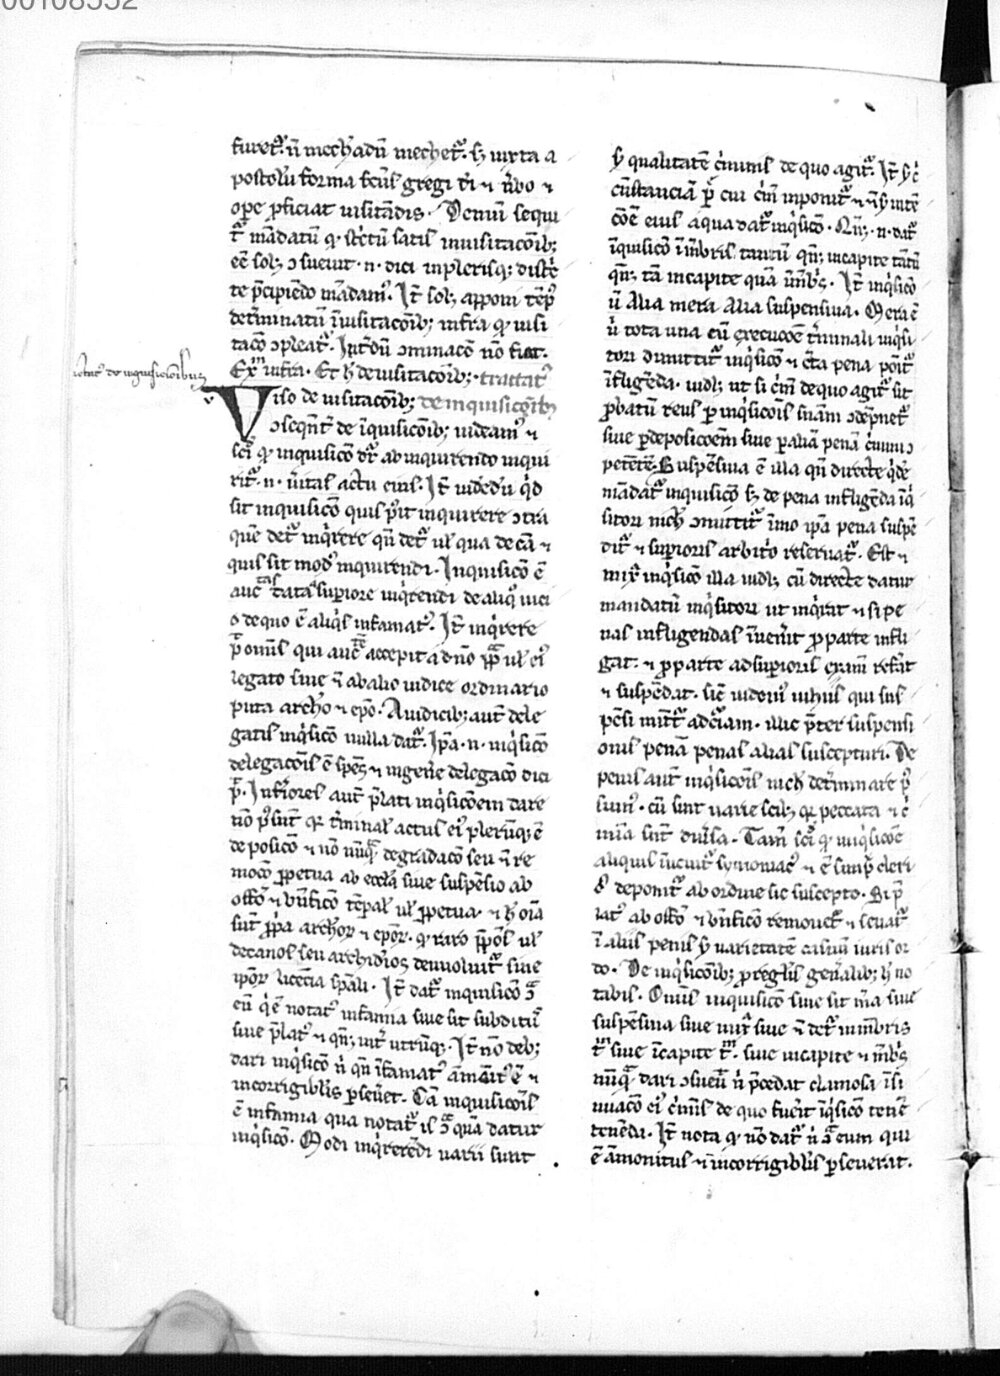 00108552
furet᷑. ū mechādū mechet᷑. sꝫ iuxta a
postolū forma fc̄us gregi dī ⁊ ūbo ⁊
oꝑe ꝓficiat uisitādis. Demū sequi
t᷑ mādatū ꝙ st̄ctū satis inuisitacōib;
eē sol; ↄsueuit. n. dici inpleris; distc̄
te p̄cipiēdo mādam᷒. It̄ sol; apponi tēp᷒
det̄minatū īuisitacōib; infra ꝙ uisi
tacō ↄpleat᷑. Int̄dū ↄminacō nō fiat.
Ex̄ infra. Et h̄ de uisitacōib; tractat᷒
Viso de uisitacōib; de inquisicōib;
ↄseqn̄t᷑ de īquisicōib; uideam᷒ ⁊
sci᷑ ꝙ inquisicō dr̄ ab inquirendo inqui
rit᷑. n. ūitas actu eius. It̄ uidēdū qͥd
sit inquisicō quis p᷒it inquirere ↄtra
quē det᷑ inqͥrere qn̄ det᷑ ul̄ qua de cā ⁊
quis sit mod᷒ inquirendi. Inquisicō ē
auctas data a supiore inqͥrendi de aliqͦ uici
o de quo ē aliqͥs infamat᷒. It̄ inqͥrere
p̄t omīs qui auctē accepit a dn̄o pp̄a ul̄ ei᷒
legato siue ē ab alio iudice ordinario
puta archō ⁊ ep̄o. A iudicib; aut̄ dele
gatis inqͥsicō nulla dat᷑. Ip̄a. n. inqͥsicō
delegacōis ē spēs ⁊ ingenē delegacō dici
p̄t. Inferiores aut̄ p̄lati inqͥsicōem dare
nō p᷒sūt qꝛ t̄minal᷒ actus ei᷒ plerūqꝫ ē
deposicō ⁊ nō nūqꝫ degradacō seu ē re
mocō ꝑpetua ab ecc̄ia siue suspēsio ab
offō ⁊ bn̄ficō tēpal᷒ ul̄ ꝑpetua. ⁊ h̄ oīa
sūt ꝓpa archōꝝ ⁊ ep̄oꝝ. ꝙ raro pp̄os ul̄
decanos seu archid᷒os deuoluit᷑ siue
ip̄oꝝ licēcia sp̄ali. It̄ dat᷑ inquisicō ꝯ̄
eū qͥ ē notat᷒ infamia siue sit subditū
siue p̄lat᷒ ⁊ qn̄; int̄ utrūqꝫ. It̄ nō deb;
dari inqͥsicō n̄ qn̄ īfamat᷒ āmoīt᷒ ē ⁊
incorrigibil̄s pseūet. Cā inquisicōis
ē infamia qua notat᷑ is ꝯ̄ quā datur
inqͥsicō. Modi inqͥrerēdi uarii sunt
ẏ qualitatē c̄mīnis de quo agit᷑. It̄ ẏ c̄
cūstanciā p̄ cui c̄m inponit᷑ ⁊ ẏ intē
cōē eius a qua dat᷑ inqͥsicō. Qn̄;. n. dat᷑
īquisicō ī mēbris tantū qn̄; incapite tātū
qn̄; tā incapite quā ī mēbͥs. It̄ inqͥsicō
ū alia mera alia suspensiua. Mera ē
ū tota una cū execucōe t̄minali inqͥsi
tori dimittit᷑ inqͥsicō ⁊ c̄ta pena pōit᷑
īfligēda. uidꝫ ut si c̄m de quo agit᷑ sit
ꝓbatū reus p inqͥsicōis sn̄iam ↄdēpnet᷑
siue p deposicoēm siue p aliā penā c̄mini ↄ
petētē. Suspēsiua ē illa qn̄ directe qͥdē
mādat᷑ inquisicō sꝫ de pena infligēda īqͥ
sitori nich̄ ↄmittit᷑ īmo ip̄a pena suspē
dit᷑ ⁊ supioris arbitͦo reseruat᷑. Est ⁊
mixͭ inqͥsicō illa uidꝫ cū directe datur
mandatū inqͥsitori ut inqͥrat ⁊ si pe
nas infligendas īuen̄it ꝓ parte infli
gat. ⁊ ꝓ parte ad supioris exam̄ refāt
⁊ suspēdat. sic̄ uidem᷒ in his qui sus
pēsi mittūt᷑ ad c̄iam. illic p̄ter suspensi
onis penā penas alias suscepturi. De
penis aut̄ inqͥsicōis nich̄ det̄minare p᷒
sum᷒. cū sint uarie scil; qꝛ peccata ⁊ c̄
mīa sint diūsa. Tam̄ sci᷑ ꝙ inqͥsicōe
aliquis īuenit᷑ symoniac᷒ ⁊ ē simp̄x cleri
c᷒ deponit᷑ ab ordine sic suscepto. Si p̄
lat᷒ ab offō ⁊ bn̄ficō remouet᷑ ⁊ seruat᷑
ī aliis penis ẏ uarietatē casuū iuris or
do. De inqͥsicōib; ꝓ regl̄is gen̄alib; h̄ no
tabis. Omīs inquisicō siue sit m̄a siue
suspēsiua siue mixͭ siue ē det᷑ in mēbris
tm̄ siue īcapite tm̄. siue incapite ⁊ mēbͥs
nūqꝫ dari ↄsueū n̄ p̄cedat clamosa īsi
nuacō ei᷒ c̄minis de quo fuerit īqͥsicō tenē
tenēda. It̄ nota ꝙ nō dat᷑ n̄ ꝯ̄ eum qui
ē āmonitus ⁊ īncorrigibil̄s pseuerat.